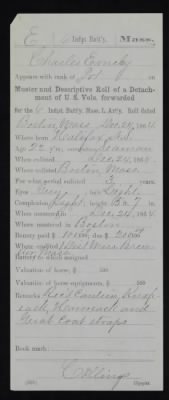 E 6 Indpt. Batt'y. Mass.
Charles
Appears with rank of Pvt. on
Muster and Descriptive Roll of a Detach-
ment of U. S. Vols. forwarded
for the 6 Indpt. Batt'y, Mass. L. Art'y. Roll dated
Boston Mass Dec 24, 1864.
Where born Halifax N.S.
Age 22 y'rs; occupation Seaman
When enlisted Dec 24, 1864.
Where enlisted Boston Mass
For what period enlisted 3 years.
Eyes Grey; hair Light
Complexion Light; height 5 ft. 7 in.
When mustered in Dec 24, 1864.
Where mustered in Boston
Bounty paid $ 100; due $ 200
Where credited
Mass
Battery to which assigned
Valuation of horse, $ 100
Valuation of horse equipments, $ 100
Remarks: Canteen
and
Great Coat straps
Book mark:
Copyist.